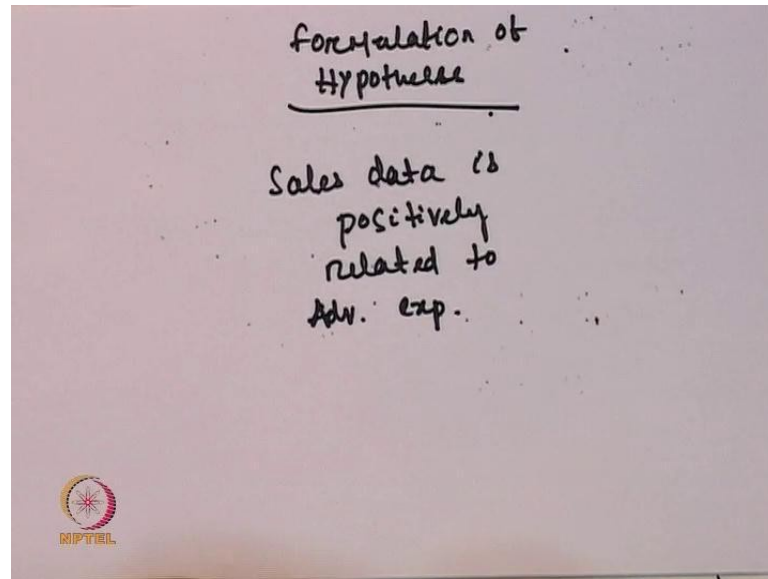 Formulation of
Hypothese
Sales data is
positively
related to
Adv. exp.
NPTEL